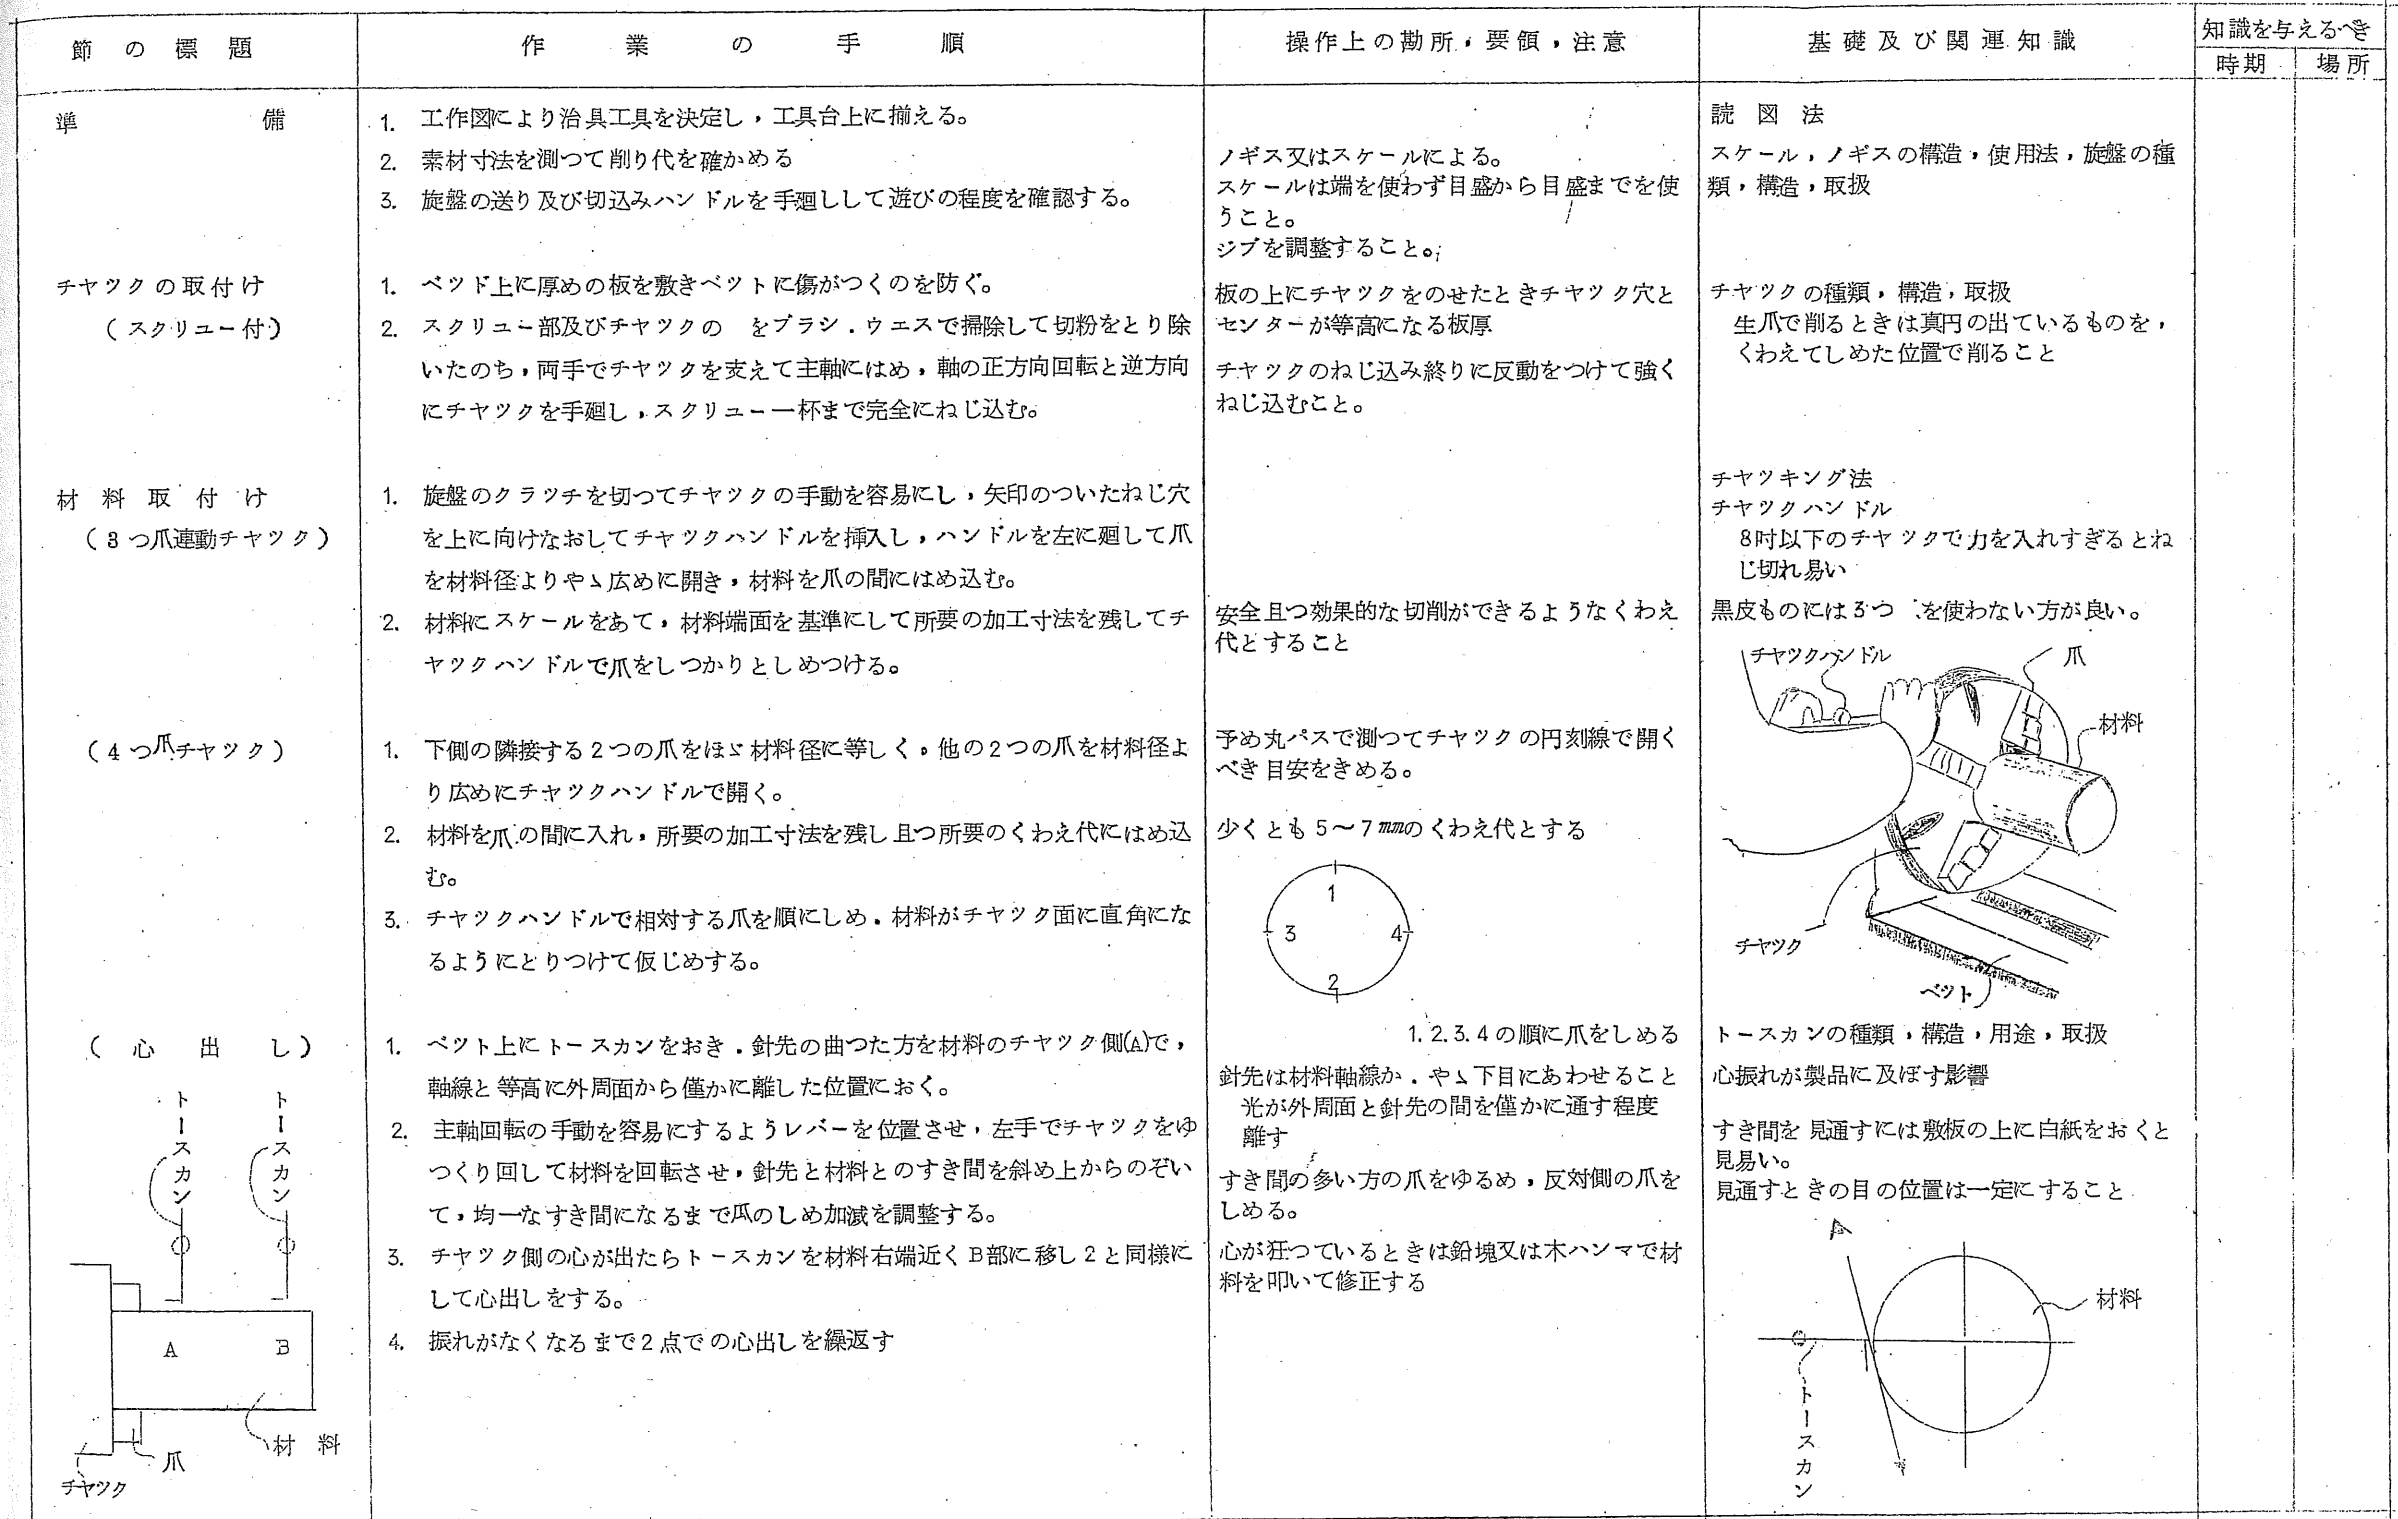 節の標題
作業の手順
操作上の勘所，要領，注意
基礎及び関連知識
知識を与えるべき
時期
場所
準備
1. 工作図により治具工具を決定し，工具台上に揃える。
2. 素材寸法を測つて削り代を確かめる
3. 旋盤の送り及び切込みハンドルを手廻しして遊びの程度を確認する。
ノギス又はスケールによる。
スケールは端を使わず目盛から目盛までを使
うこと。
ジブを調整すること。
読図法
スケール，ノギスの構造，使用法，旋盤の種
類，構造，取扱
チヤツクの取付け
（スクリユー付）
1. ベツド上に厚めの板を敷きベツトに傷がつくのを防ぐ。
2. スクリユー部及びチヤツクの　をブラシ．ウエスで掃除して切粉をとり除
いたのち，両手でチヤツクを支えて主軸にはめ，軸の正方向回転と逆方向
にチヤツクを手廻し，スクリユー一杯まで完全にねじ込む。
板の上にチヤツクをのせたときチヤツク穴と
センターが等高になる板厚
チヤツクのねじ込み終りに反動をつけて強く
ねじ込むこと。
チヤツクの種類，構造，取扱
生爪で削るときは真円の出ているものを，
くわえてしめた位置で削ること
材料取付け
（3つ爪連動チヤツク）
1. 旋盤のクラツチを切つてチヤツクの手動を容易にし，矢印のついたねじ穴
を上に向けなおしてチヤツクハンドルを挿入し，ハンドルを左に廻して爪
を材料径よりやゝ広めに開き，材料を爪の間にはめ込む。
2. 材料にスケールをあて，材料端面を基準にして所要の加工寸法を残してチ
ヤツクハンドルで爪をしつかりとしめつける。
安全且つ効果的な切削ができるようなくわえ
代とすること
チヤツキング法
チヤツクハンドル
8吋以下のチヤツクで力を入れすぎるとね
じ切れ易い
黒皮ものには3つ　を使わない方が良い。
チヤツクハンドル
爪
材料
チヤツク
ベツト
（4つ爪チヤツク）
1. 下側の隣接する2つの爪をほゞ材料径に等しく，他の2つの爪を材料径よ
り広めにチヤツクハンドルで開く。
2. 材料を爪の間に入れ，所要の加工寸法を残し且つ所要のくわえ代にはめ込
む。
3. チヤツクハンドルで相対する爪を順にしめ．材料がチヤツク面に直角にな
るようにとりつけて仮じめする。
予め丸パスで測つてチヤツクの円刻線で開く
べき目安をきめる。
少くとも5～7㎜のくわえ代とする
1
3
4
2
1.2.3.4の順に爪をしめる
（心出し）
1. ベツト上にトースカンをおき．針先の曲つた方を材料のチヤツク側(A)で，
軸線と等高に外周面から僅かに離した位置におく。
2. 主軸回転の手動を容易にするようレバーを位置させ，左手でチヤツクをゆ
つくり回して材料を回転させ，針先と材料とのすき間を斜め上からのぞい
て，均一なすき間になるまで爪のしめ加減を調整する。
3. チヤツク側の心が出たらトースカンを材料右端近くB部に移し2と同様に
して心出しをする。
4. 振れがなくなるまで2点での心出しを繰返す
針先は材料軸線か．やゝ下目にあわせること
光が外周面と針先の間を僅かに通す程度
離す
すき間の多い方の爪をゆるめ，反対側の爪を
しめる。
心が狂つているときは鉛塊又は木ハンマで材
料を叩いて修正する
トースカンの種類，構造，用途，取扱
心振れが製品に及ぼす影響
すき間を見通すには敷板の上に白紙をおくと
見易い。
見通すときの目の位置は一定にすること
トースカン
トースカン
A
B
材料
爪
チヤツク
材料
トースカン